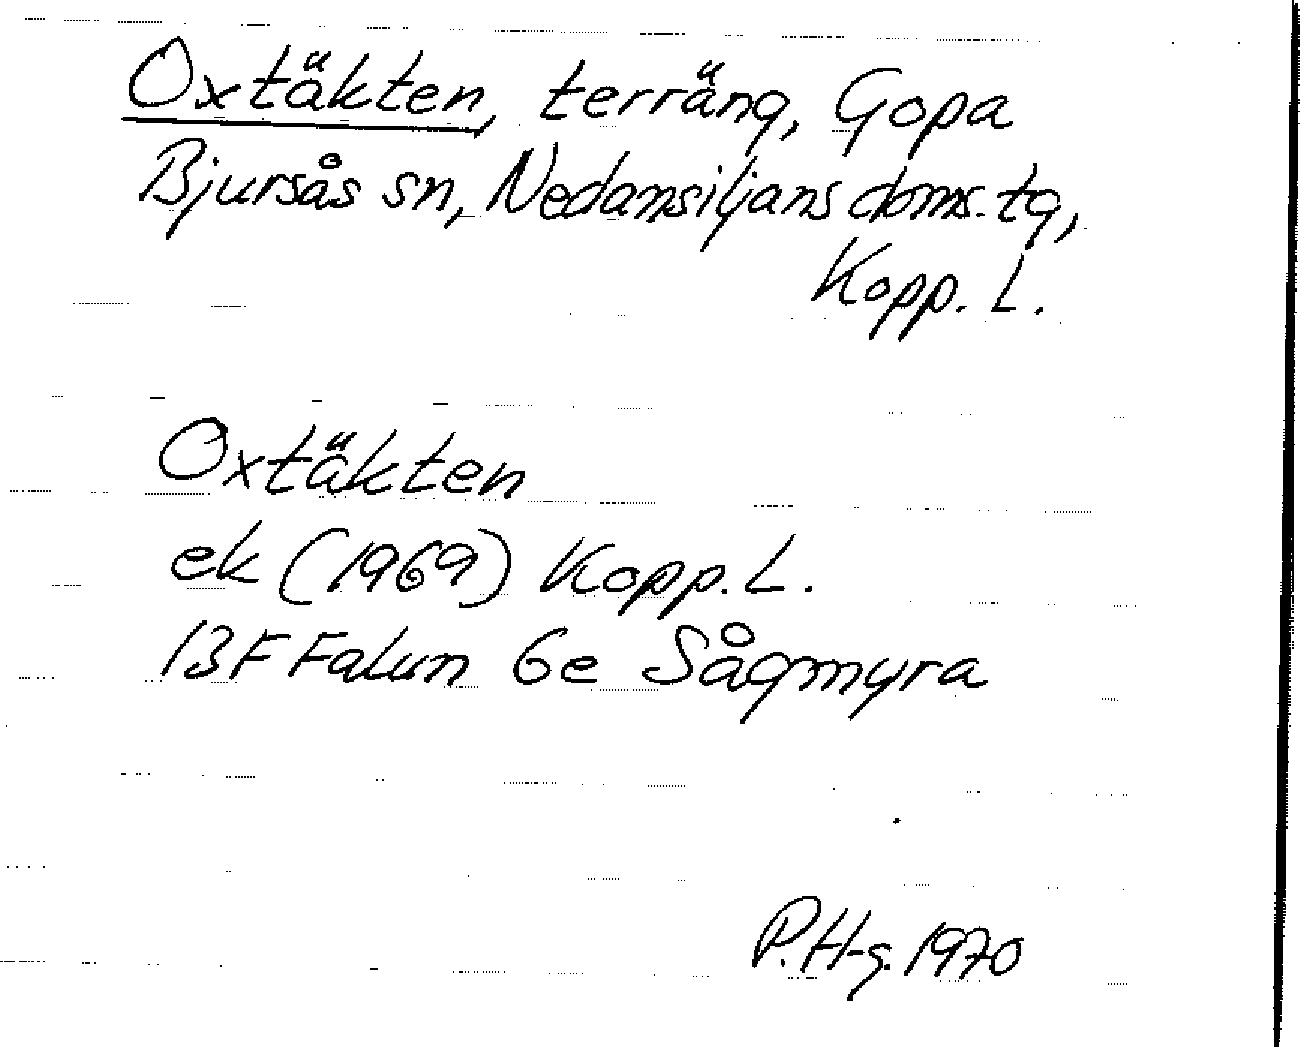 Oxtäkten, terräng, Gopa
Bjursås sn, Nedansiljans doms. tg,
Kopp. L.
Oxtäkten
ek (1969) Kopp. L.
13F Falun 6e Sågmyra
P. H-g. 1970